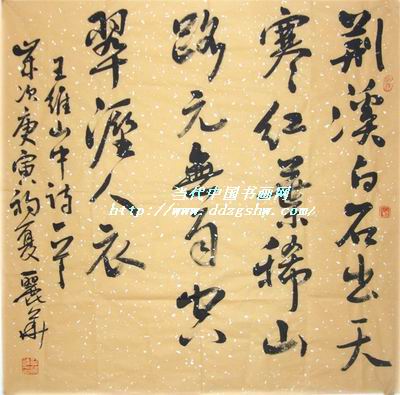 荆溪白石出天
寒红葉稀山
路元無雨空
翠溼人衣
王維山中詩一首
歲次庚寅初夏麗華
当代中国书画网
http://www.ddzgshw.com/